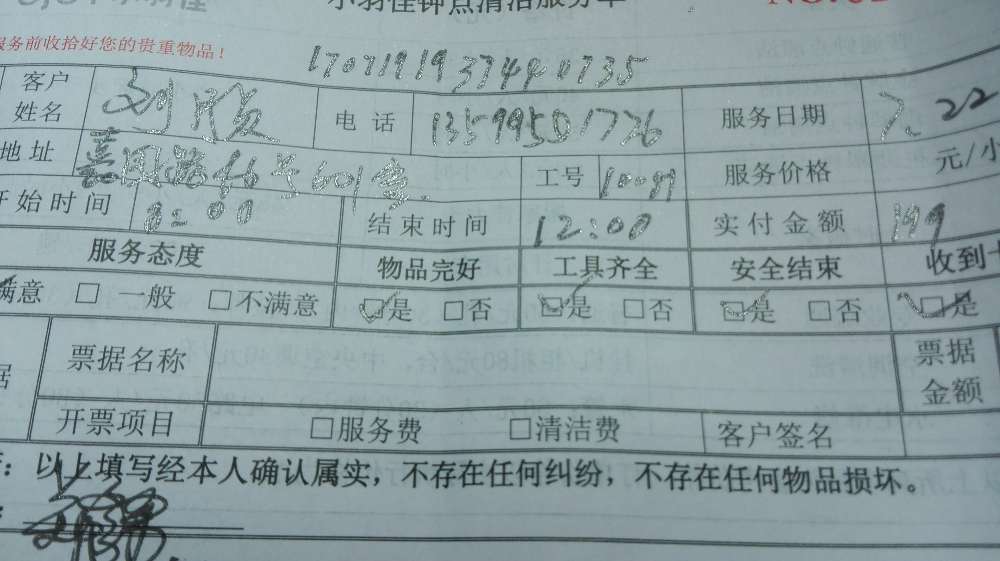 小羽佳钟点清洁服务单 NO.
服务前收拾好您的贵重物品！
17071919374940735
客户姓名 刘 电话 13599501726 服务日期 7.22
地址 路 号601室 工号 10081 服务价格 元/小
开始时间 :00 结束时间 12:00 实付金额 199
服务态度 物品完好 工具齐全 安全结束 收到
满意 □一般 □不满意 ☑是 □否 ☑是 □否 ☑是 □否 ☑是
据 票据名称 票据金额
开票项目 □服务费 □清洁费 客户签名
：以上填写经本人确认属实，不存在任何纠纷，不存在任何物品损坏。